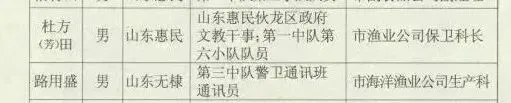 杜方(芳)田 男 山东惠民 山东惠民伙龙区政府文教干事;第一中队第六小队队员 市渔业公司保卫科长
路用盛 男 山东无棣 第三中队警卫通讯班通讯员 市海洋渔业公司生产科